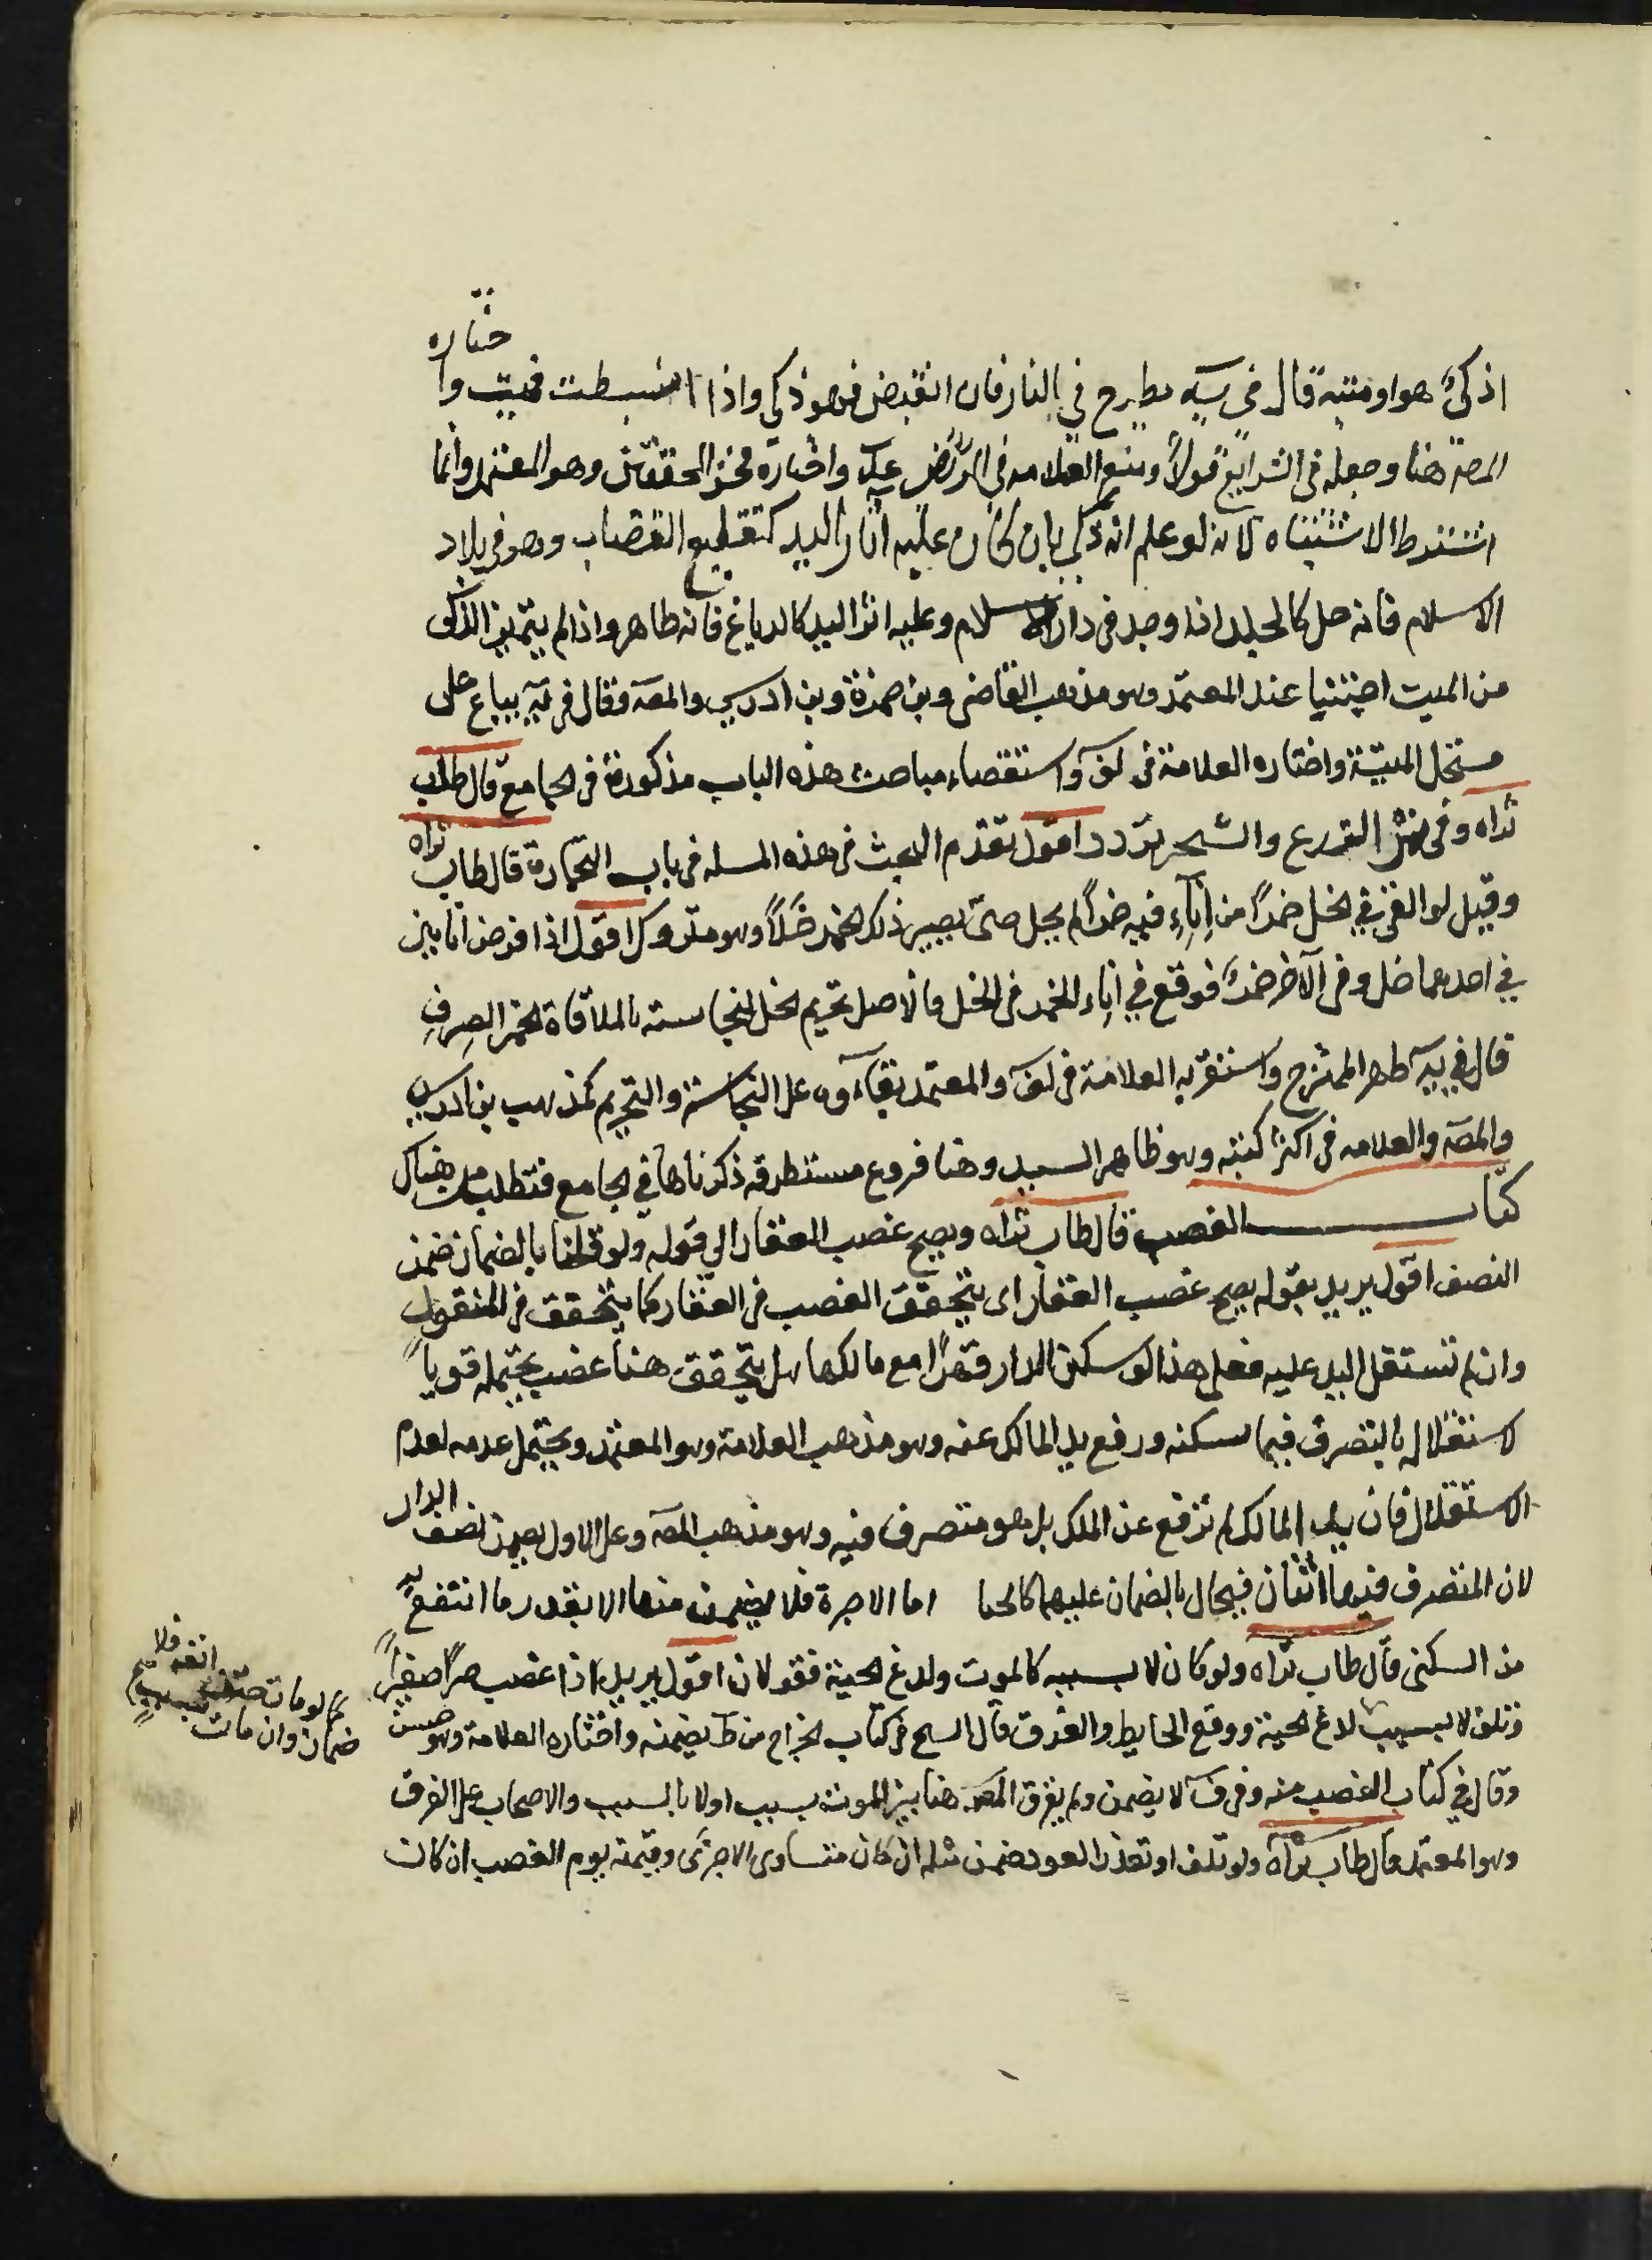 اذكىّ هو او ميتة قال فى يه يطرح في النار فان انقبض فهو ذكى واذا انبسطت فميت واختاره
المصة هنا وجعله فى الشرايع قولاً ومنع العلامه فى واختاره فخر المحققين وهو المعتمد وانما
اشترط الاشتباه لانه لو علم انه ذكى بان كان عليه اثار اليد كتقطيع القصاب وهو فى بلاد
الاسلام فانه حل كالجلد اذا وجد فى دار الاسلام وعليه اثر اليد كالدباغ فانه طاهر واذا لم يتميز الذكى
من الميت اجتنبا عند المعتمد وهو مذهب القاضى وبن حمزة وبن ادريس والمصة وقال فى يه يباع على
مستحل الميتة واختاره العلامة فى لف واستقصاء مباحث هذه الباب مذكورة فى الجامع قال طاب
ثراه وفى الزرع والشجر تردد اقول تقدم البحث فى هذه المسله فى باب التجارة قال طاب ثراه
وقيل لو القى فى الخل خمراً من اناء فيه خمراً لم يحل حتى يصير ذلك الخمر خلاً وهو متروك اقول اذا فرض انايين
في احدهما خل وفى الآخر خمرٌ فوقع في اناء الخمر فى الخل فالاصل تحريم الخل لنجاسته بالملاقاة للخمر الصرف
قال في يه طهر الممتزج واستقربه العلامة فى لف والمعتمد بقاءوه على النجاسة والتحريم كمذهب بن ادريس
والمصة والعلامه فى اكثر كتبه وهو ظاهر السيد وهنا فروع مستطرقه ذكرناها في الجامع فتطلب من هناك
كتاب الغصب قال طاب ثراه ويصح غصب العقار الى قوله ولو قلنا بالضمان ضمن
النصف اقول يريد بقوله يصح غصب العقار اى يتحقق الغصب فى العقار كما يتحقق فى المنقول
وان لم تستقل اليد عليه فعلى هذا لو سكن الدار قهراً مع مالكها هل يتحقق هنا غصب يحتمله قوياً
لاستقلاله بالتصرف فيما سكنه ورفع يد المالك عنه وهو مذهب العلامة وهو المعتمد ويحتمل عدمه لعدم
الاستقلال فان يد المالك لم ترفع عن الملك بل هو متصرف فيه وهو مذهب المصة وعلى الاول يضمن نصف الدار
لان المتصرف فيها اثنان فيحال بالضمان عليهما كالجنا اما الاجرة فلا يضمن منها الا بقدر ما انتفع به
من السكنى قال طاب ثراه ولو كان لا بسببه كالموت ولدغ الحية فقولان اقول يريد اذا غصب حراً صغيراً
فتلف لا بسبب لدغ الحية ووقع الحايط والغرق قال الشيخ فى كتاب الجراح من ط يضمنه واختاره العلامة وهو حسن
وقال في كتاب الغصب منه وفى ف لا يضمن ولم يفرق المصة هنا بين الموت بسبب اولا بالسبب والاصحاب على الفرق
وهو المعتمد قال طاب ثراه ولو تلف او تعذر العود ضمن مثله ان كان متساوى الاجزاى وقيمته يوم الغصب ان كان
نعم لو مات حتف انفه فلا
ضمان وان مات بسبب